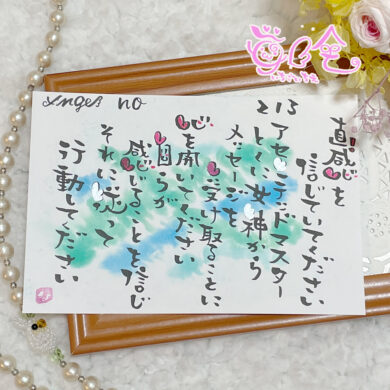 Angel no
213
直感を
信じていてください
アセンテッドマスター
とくに女神から
メッセージを
受け取ることに
心を開いてください
自らが
感じることを信じ
それに従って
行動してください